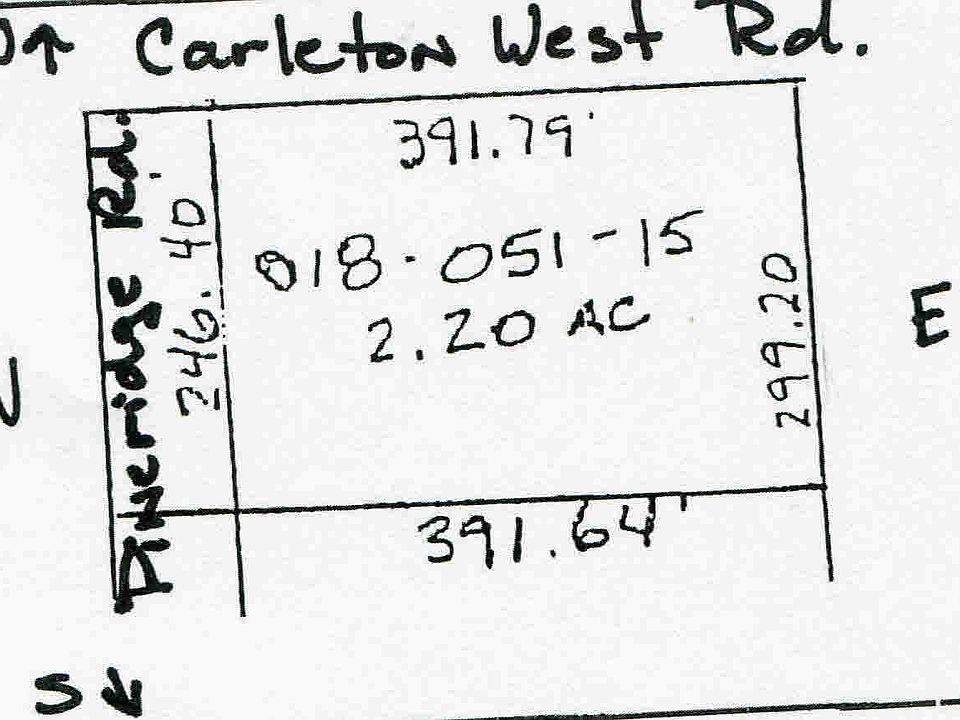 ↑ Carleton West Rd.
391.79'
Pineridge Rd.
246.40'
018-051-15
2.20 AC
299.20
E
391.64'
S↓